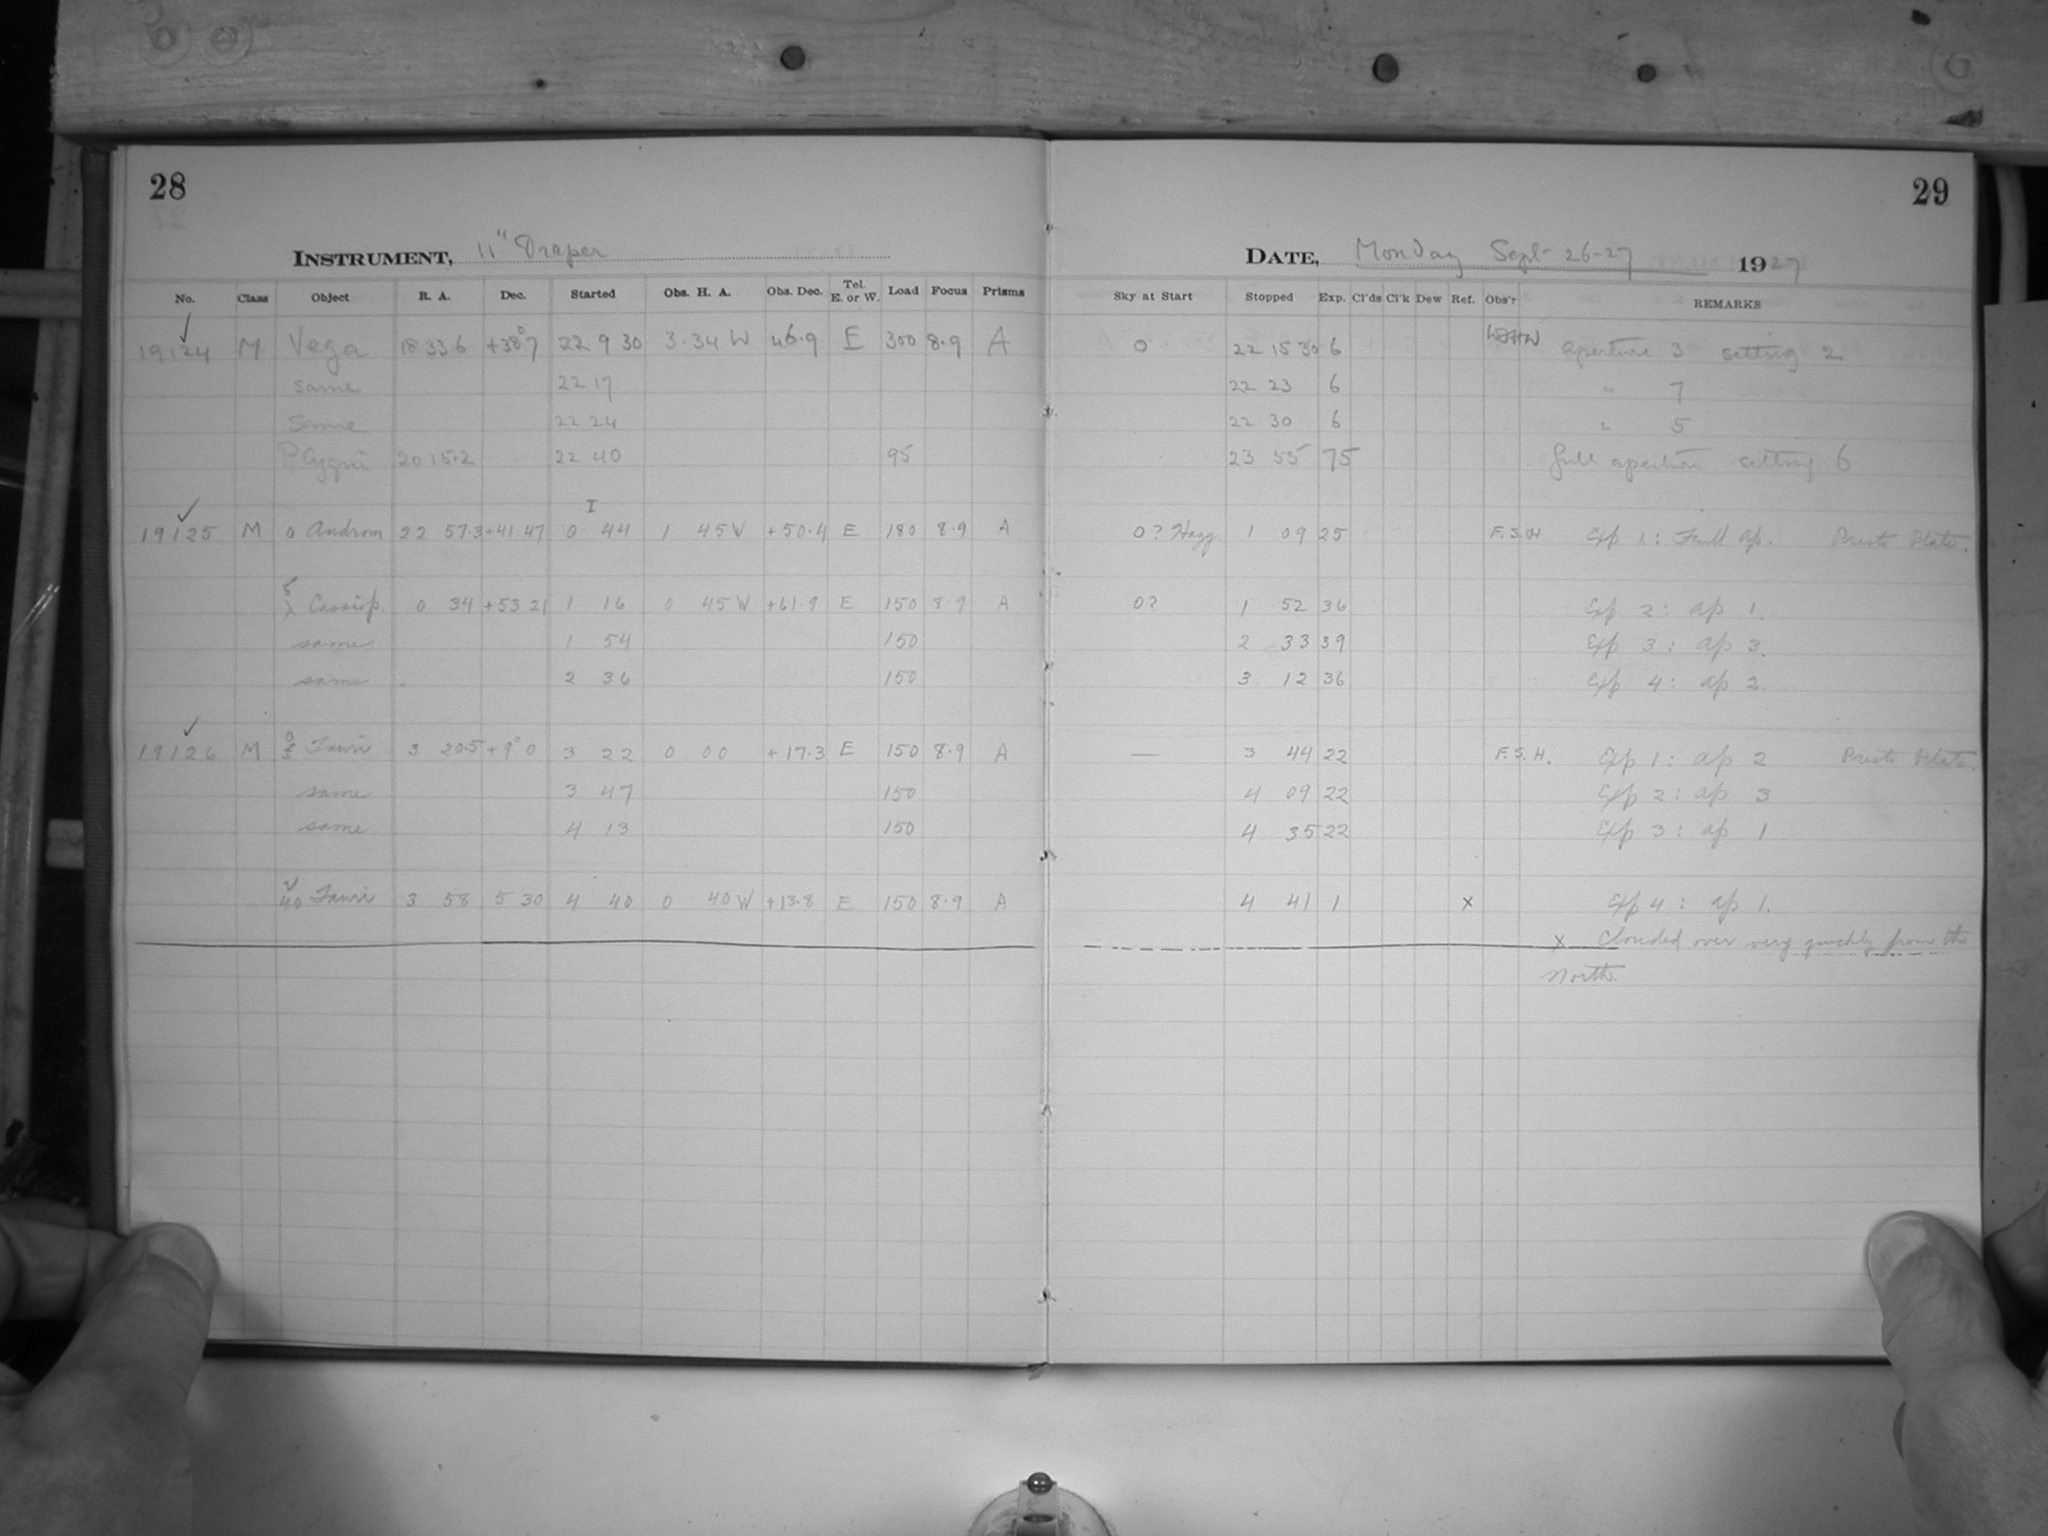 28
29
INSTRUMENT, 11" Draper
DATE, Monday Sept 26-27 1927
No. Class Object R. A. Dec. Started Obs. H. A. Obs. Dec. Tel. E. or W. Load Focus Prisms Sky at Start Stopped Exp. Cl'ds Cl'k Dew Ref. Obs'r REMARKS
19124 M Vega 18 33.6 +38°.7 22 9 30 3.34 W 46.9 E 300 8.9 A 0 22 15 30 6 aperture 3 setting 2
same 22 17 22 23 6 " 7
same 22 24 22 30 6 " 5
P Cygni 20 15.2 22 40 95 23 55 75 full aperture setting 6
I
19125 M o Androm 22 57.3 +41 47 0 44 1 45 W +50.4 E 180 8.9 A 0? Hazy 1 09 25 F.S.H Exp 1: Full ap. Presto Plate.
ζ λ Cassiop 0 34 +53 21 1 16 0 45 W +61.9 E 150 8.9 A 0? 1 52 36 Exp 2: ap 1.
same 1 54 150 2 33 39 Exp 3: ap 3.
same 2 36 150 3 12 36 Exp 4: ap 2.
19126 M o ξ Tauri 3 20.5 +9° 0 3 22 0 00 +17.3 E 150 8.9 A — 3 44 22 F.S.H. Exp 1: ap 2 Presto Plate.
same 3 47 150 4 09 22 Exp 2: ap 3
same 4 13 150 4 35 22 Exp 3: ap 1
ν 40 Tauri 3 58 5 30 4 40 0 40 W +13.8 E 150 8.9 A 4 41 1 x Exp 4: ap 1.
x Clouded over very quickly from the
north.